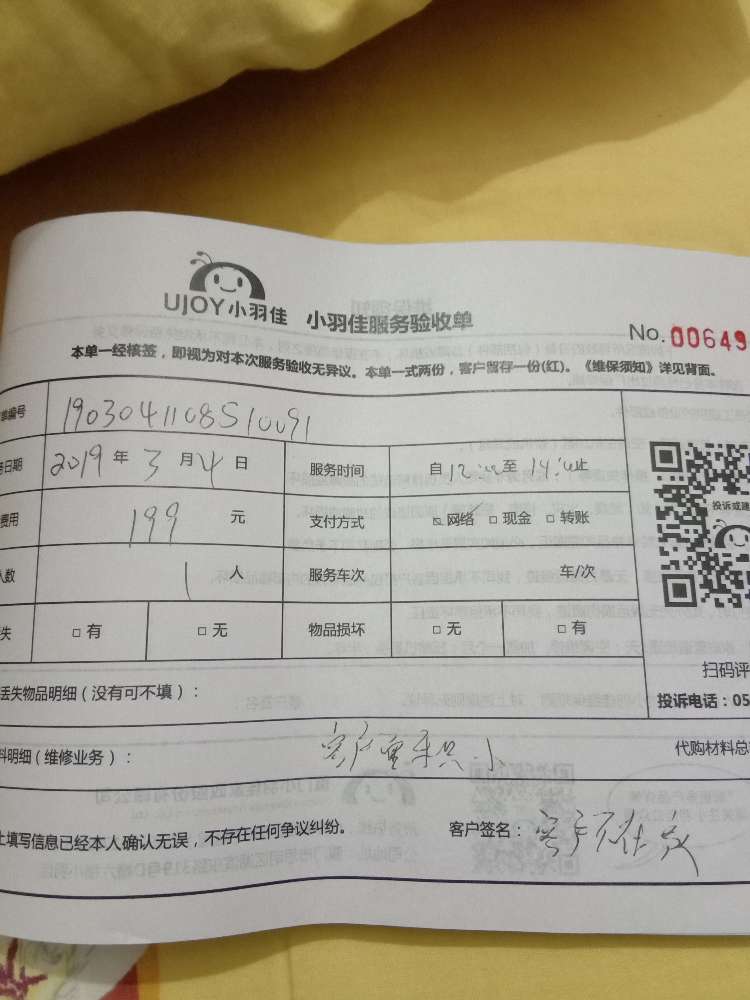 UJOY小羽佳 小羽佳服务验收单
No.00649
本单一经核签，即视为对本次服务验收无异议。本单一式两份，客户留存一份(红)。《维保须知》详见背面。
单编号 1903041108510091
日期 2019 年 3 月 4 日 服务时间 自 12:00 至 14:00 止
费用 199 元 支付方式 网络 □ 现金 □ 转账
人数 1 人 服务车次 车/次
失 □ 有 □ 无 物品损坏 □ 无 □ 有
投诉或建
扫码评
丢失物品明细（没有可不填）：
投诉电话：05
料明细（维修业务）：
代购材料总
上填写信息已经本人确认无误，不存在任何争议纠纷。
客户签名：客户不在家